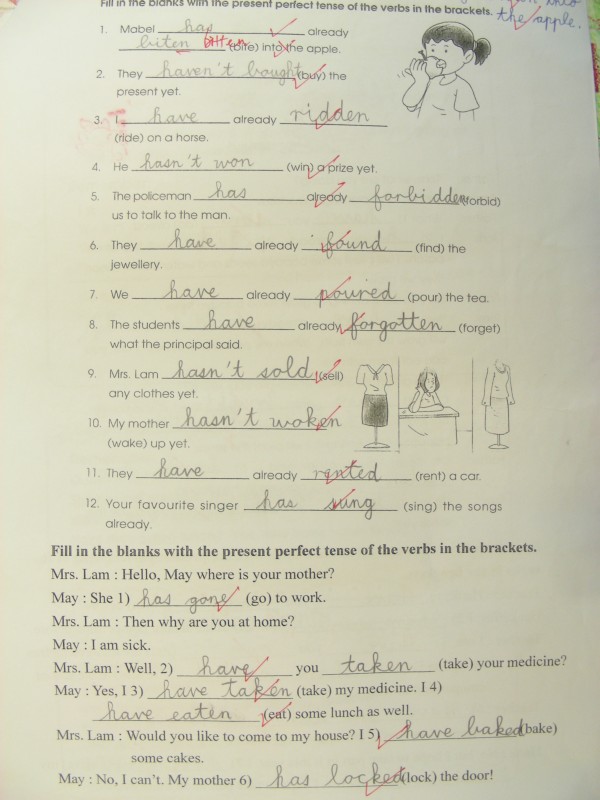 Fill in the blanks with the present perfect tense of the verbs in the brackets.
the apple.
1. Mabel has already
biten bitten (bite) into the apple.
2. They haven't bought (buy) the
present yet.
3. I have already ridden
(ride) on a horse.
4. He hasn't won (win) a prize yet.
5. The policeman has already forbidden (forbid)
us to talk to the man.
6. They have already found (find) the
jewellery.
7. We have already poured (pour) the tea.
8. The students have already forgotten (forget)
what the principal said.
9. Mrs. Lam hasn't sold (sell)
any clothes yet.
10. My mother hasn't woken
(wake) up yet.
11. They have already rented (rent) a car.
12. Your favourite singer has sung (sing) the songs
already.
Fill in the blanks with the present perfect tense of the verbs in the brackets.
Mrs. Lam : Hello, May where is your mother?
May : She 1) has gone (go) to work.
Mrs. Lam : Then why are you at home?
May : I am sick.
Mrs. Lam : Well, 2) have you taken (take) your medicine?
May : Yes, I 3) have taken (take) my medicine. I 4)
have eaten (eat) some lunch as well.
Mrs. Lam : Would you like to come to my house? I 5) have baked (bake)
some cakes.
May : No, I can't. My mother 6) has locked (lock) the door!